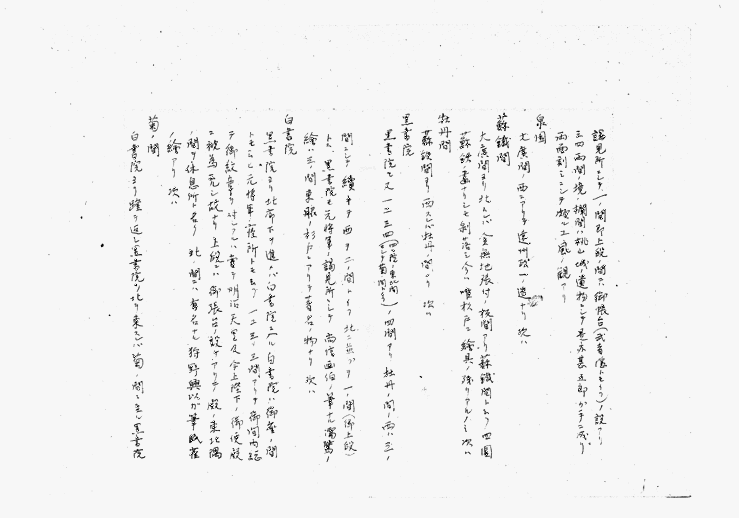 謁見所ニシテ一ノ間即上段ノ間ハ御帳台(武者隠トモ云フ)ノ設アリ
三四両間ノ境ノ欄間ハ桃山城ノ遺物ニシテ是亦甚五郎ガ手ニ成リ
両面刻ミニシテ極上ノ風ノ観アリ
泉園
大広間ノ西ニアリテ遠州政一ノ造ナリ 次ハ
蘇鉄間
大広間ヨリ北スレバ金無地張付ノ板間アリ蘇鉄間ト云フ四囲
蘇鉄ノ画ナリシモ剥落シ今ハ唯杉戸ニ絵具ノ跡リアルノミ 次ハ
牡丹間
蘇鉄間ヨリ西スレバ牡丹ノ間アリ 次ハ
黒書院
黒書院モ又一二三四(四ノ間ハ東北間ニシテ菊ノ間)ノ四間アリ牡丹ノ間ノ西ハ三ノ
間ニシテ続キテ西ヲ二ノ間トイフ北ニ並ブヲ一ノ間(御上段)
トス、黒書院モ元将軍ノ謁見所ニシテ尚信画伯ノ筆ナル濡鷺ノ
絵ハ三ノ間東服ノ杉戸ニアリテ著名ノ物ナリ 次ハ
白書院
黒書院ヨリ北廊下ヲ進メバ白書院ニ入ル白書院ハ御座ノ間
トモ云ヒ元将軍ノ寝所トモ云フ一二三ノ三間アリテ御間内総
テ御紋章ヲ付シアルハ嘗テ明治天皇及今上陛下ノ御便殿
ニ被為充シ故ナリ上段ニハ御張台ノ設ケアリテ殿ノ東北隅
ノ間ヲ休息所ト名ケ北ノ間ニハ有名ナル狩野興以ガ筆眠雀
ノ絵アリ 次ハ
菊ノ間
白書院ヨリ踵ヲ返シ黒書院ノ北ヲ東スレバ菊ノ間ニ至ル黒書院